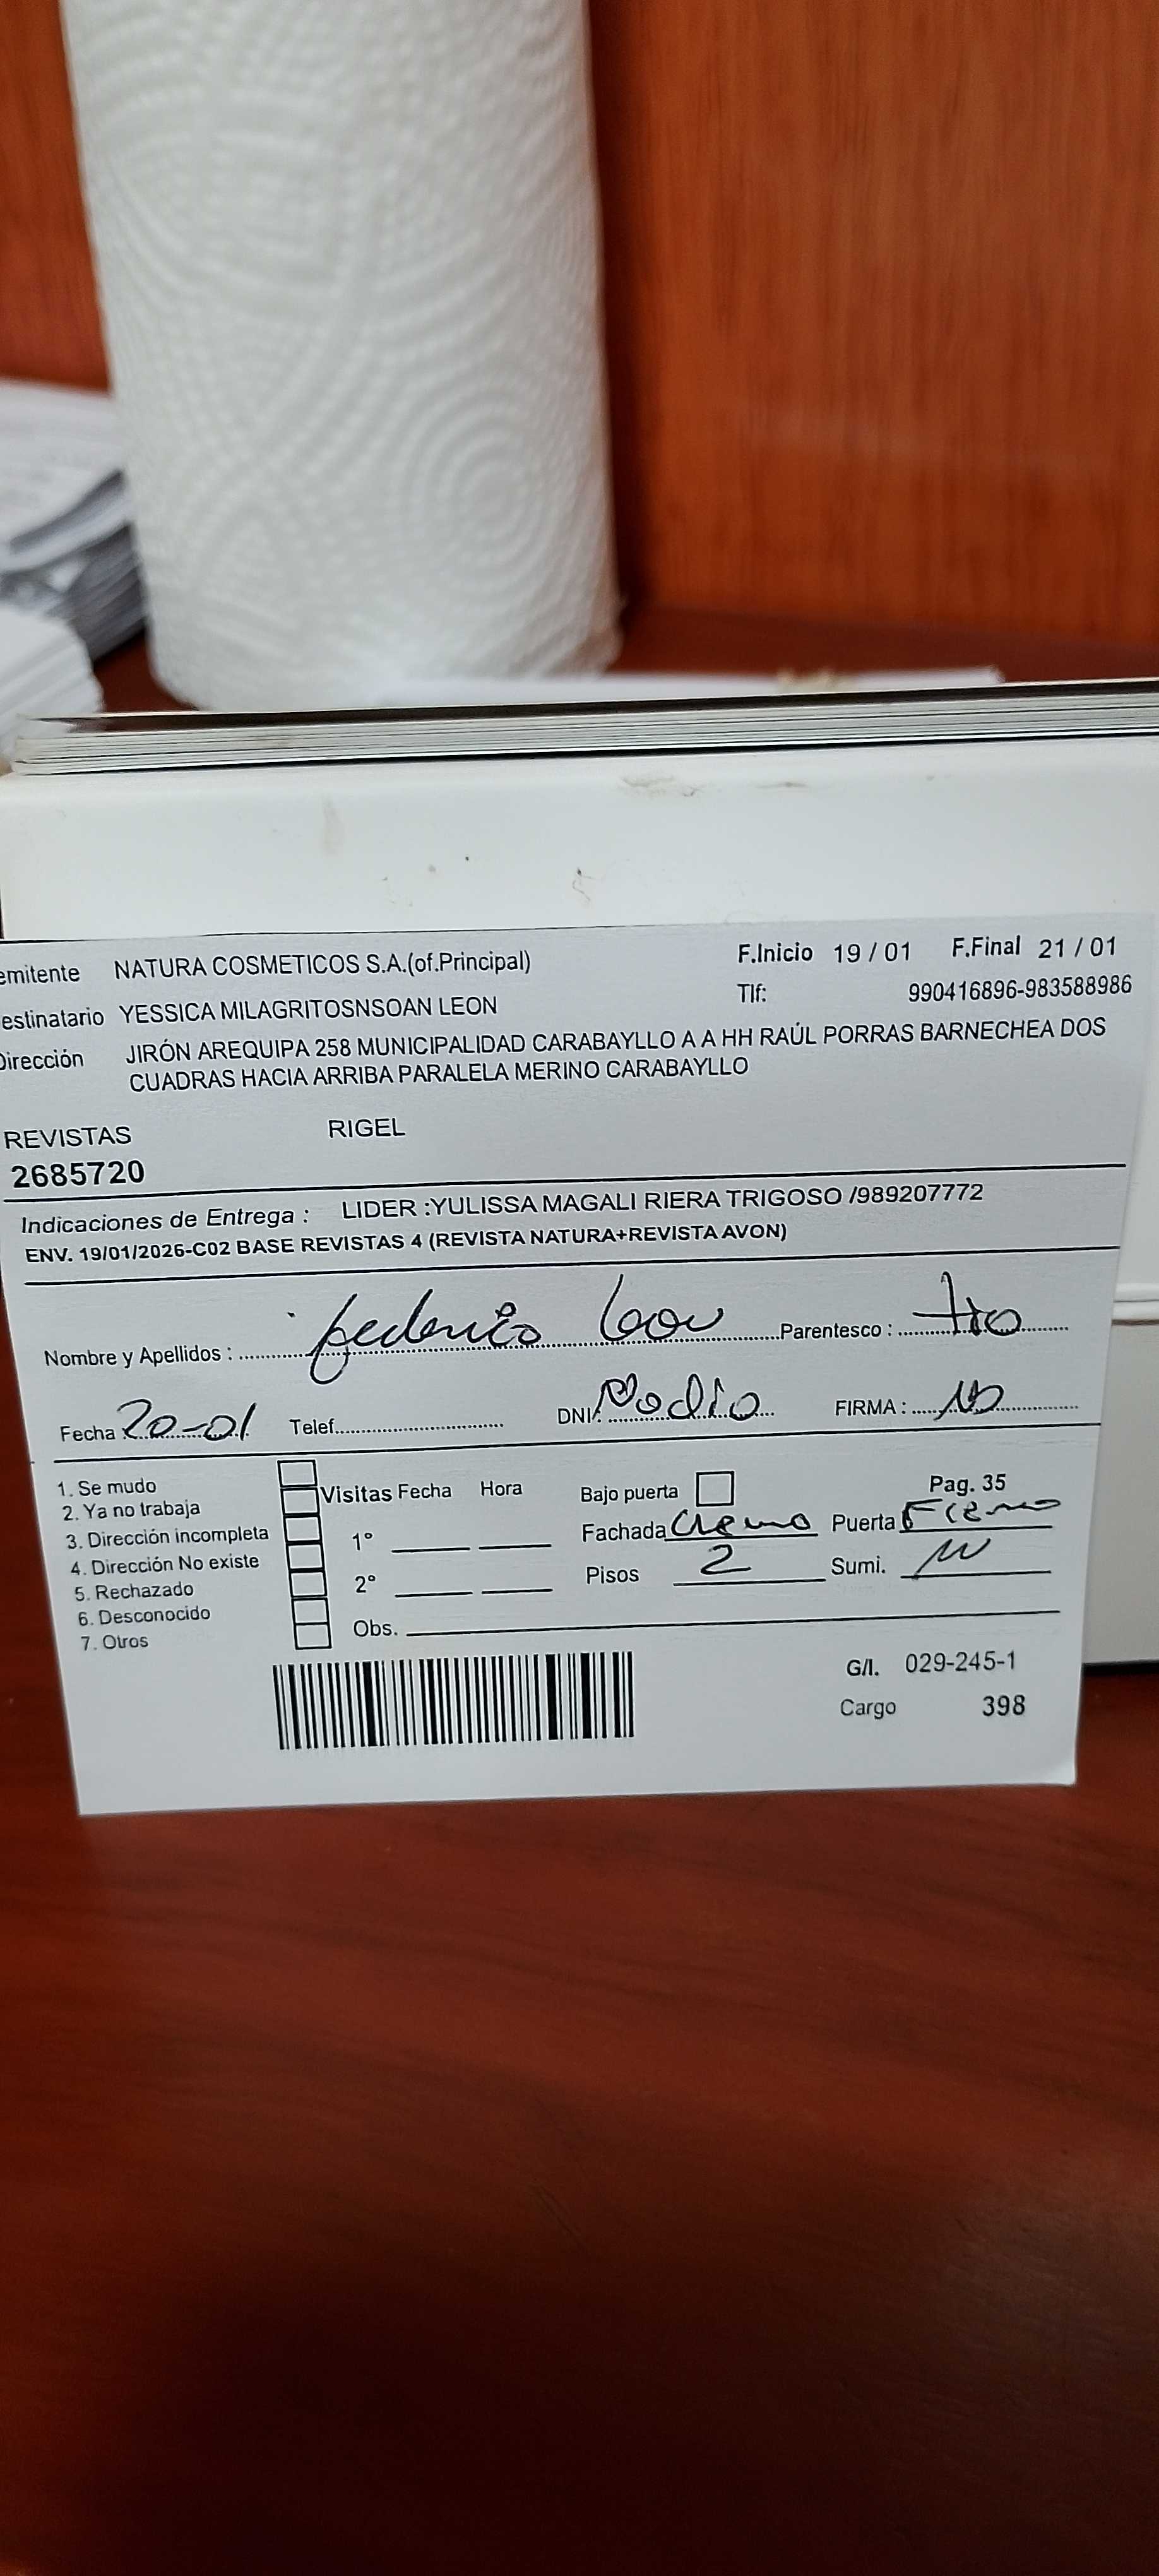 emitente NATURA COSMETICOS S.A.(of.Principal) F.Inicio 19 / 01 F.Final 21 / 01
estinatario YESSICA MILAGRITOSNSOAN LEON Tlf: 990416896-983588986
Dirección JIRÓN AREQUIPA 258 MUNICIPALIDAD CARABAYLLO A A HH RAÚL PORRAS BARNECHEA DOS
CUADRAS HACIA ARRIBA PARALELA MERINO CARABAYLLO
REVISTAS RIGEL
2685720
Indicaciones de Entrega : LIDER :YULISSA MAGALI RIERA TRIGOSO /989207772
ENV. 19/01/2026-C02 BASE REVISTAS 4 (REVISTA NATURA+REVISTA AVON)
Nombre y Apellidos : federico leon Parentesco : tio
Fecha 20-01 Telef. DNI: FIRMA :
1. Se mudo
2. Ya no trabaja
3. Dirección incompleta
4. Dirección No existe
5. Rechazado
6. Desconocido
7. Otros
Visitas Fecha Hora
1°
2°
Obs.
Bajo puerta Pag. 35
Fachada Cremo Puerta
Pisos 2 Sumi.
G/I. 029-245-1
Cargo 398